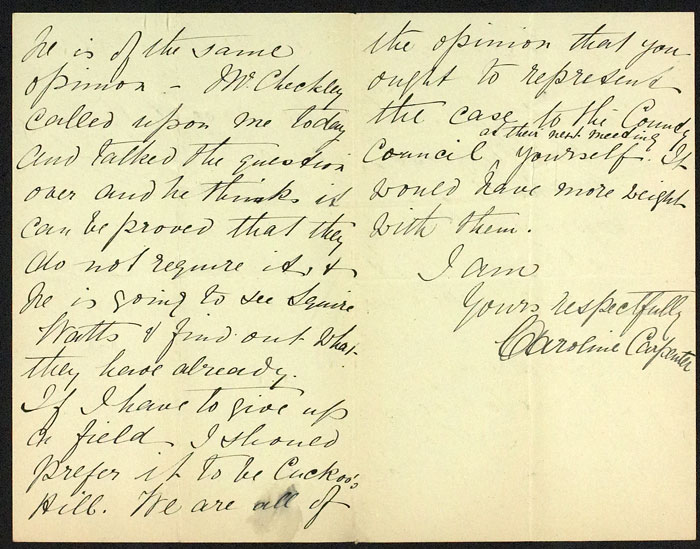 he is of the same
opinion - Mr. Checkley
called upon me today
and talked the question
over and he thinks it
can be proved that they
do not require it, &
he is going to see Squire
Watts & find out what
they have already.
If I have to give up
a field I should
prefer it to be Cuckoo's
Hill. We are all of
the opinion that you
ought to represent
the case to the County
at their next meeting
Council yourself. It
would have more weight
with them.
I am
Yours respectfully
Caroline Carpenter